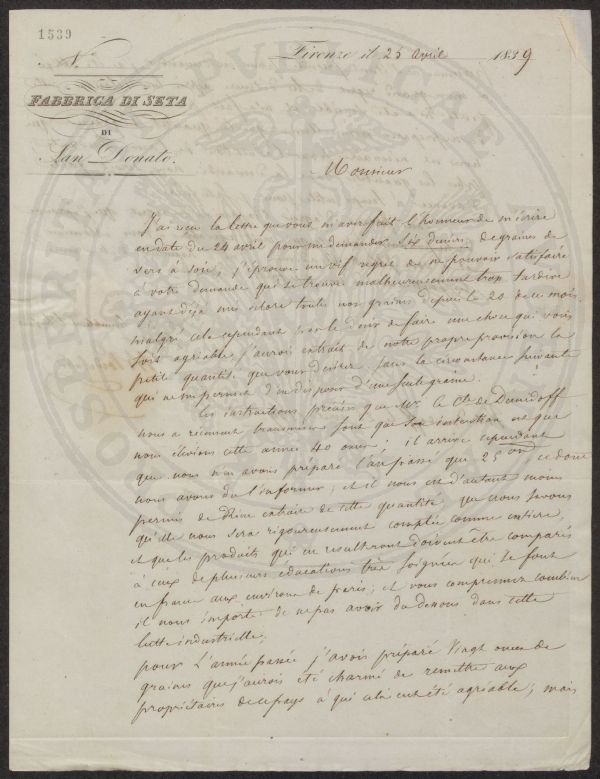 1539
N.
Firenze il 25 avril 1839
FABBRICA DI SETA
DI
San Donato.
Monsieur
J'ai reçu la lettre que vous m'avez fait l'honneur de m'écrire
en date du 24 avril pour me demander de graines de
vers à soie, j'éprouve un vif regret de ne pouvoir satisfaire
à votre demande qui se trouve malheureusement trop tardive
ayant déjà mis éclore toutes nos graines depuis le 20 de ce mois
malgré cela cependant pour le désir de faire une chose qui vous
soit agréable j'aurois extrait de notre propre provision la
petite quantité que vous desirez sans la circonstance suivante
qui ne me permet d'en disposer d'une seule graine.
les instructions précises que Mr. le Cte de Demidoff
nous a récemment transmises sont que son intention est que
nous élevions cette année 40 onces; il arrive cependant
que nous n'en avons préparé l'an passé que 25 on ce dont
nous avons du l'informer, et il nous est d'autant moins
permis de rien extraire de cette quantité que nous savons
qu'elle nous sera rigoureusement comptée comme entière,
et que les produits qui en resulteront doivent etre comparés
à ceux de plusieurs educations très soignées qui se font
en france aux environs de paris; et vous comprenez combien
il nous importe de ne pas avoir du dessous dans cette
lutte industrielle.
pour l'année passée j'avois préparé Vingt onces de
graines que j'aurois été charmé de remettre aux
propriétaires de ce pays à qui cela eut été agréable; mais